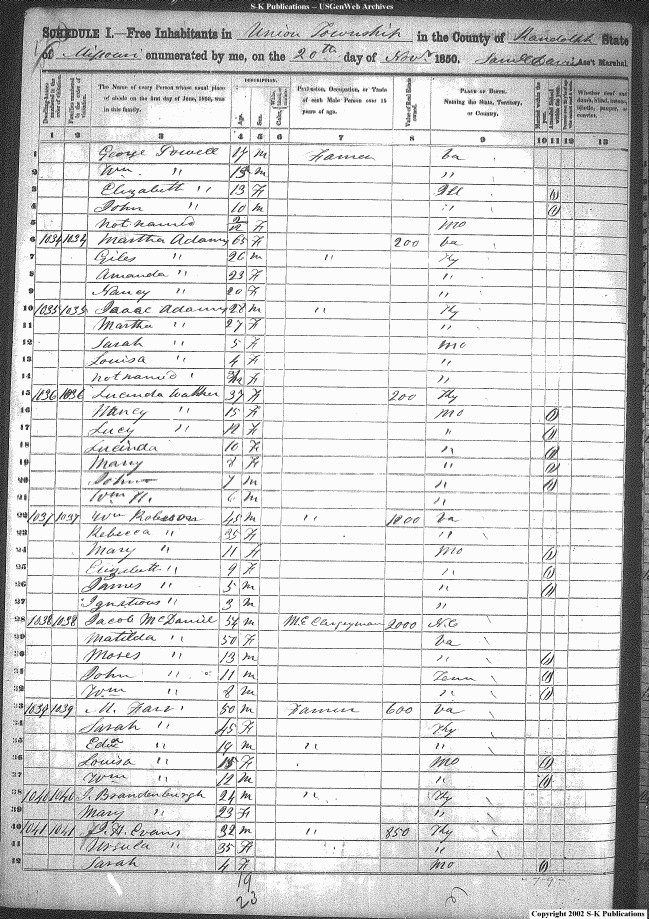 S-K Publications -- USGenWeb Archives
SCHEDULE I.—Free Inhabitants in Union Township in the County of Randolph State
of Missouri enumerated by me, on the 20th day of Novr 1850. Saml Davis Ass't Marshal.
Dwelling-houses numbered in the order of visitation.
Families numbered in the order of visitation.
The Name of every Person whose usual place of abode on the first day of June, 1850, was in this family.
DESCRIPTION.
Age.
Sex.
Profession, Occupation, or Trade of each Male Person over 15 years of age.
Value of Real Estate owned.
PLACE OF BIRTH.
Naming the State, Territory, or Country.
Married within the year.
Whether deaf and dumb, blind, insane, idiotic, pauper, or convict.
1 2 3 4 5 6 7 8 9 10 11 12 13
1 George Powell 17 m Farmer Va
2 Wm " 15 m "
3 Elizabeth " 13 F Ill (1)
4 John " 10 m " (1)
5 not named 2/12 F Mo
6 1034 1034 Martha Adams 65 F 200 Va
7 Giles " 26 m " Ky
8 Amanda " 23 F "
9 Nancy " 20 F "
10 1035 1035 Isaac Adams 28 m " Ky
11 Martha " 27 F "
12 Sarah " 5 F Mo
13 Louisa " 4 F "
14 not named " F "
15 1036 1036 Lucinda Walker 37 F 200 Ky
16 Nancy " 15 F Mo (1)
17 Lucy " 12 F " (1)
18 Lucinda 10 F " (1)
19 Mary 8 F " (1)
20 John 7 m " (1)
21 Wm H. 6 m "
22 1037 1037 Wm Roberson 45 m " 1000 Va
23 Rebecca " 35 F "
24 Mary " 11 F Mo (1)
25 Elizabeth " 9 F " (1)
26 James " 5 m " (1)
27 Ignatious " 3 m "
28 1038 1038 Jacob McDaniel 54 m M.E Clergyman 2000 N.C
29 Matilda " 50 F Va
30 Moses " 13 m " (1)
31 John " 11 m Tenn (1)
32 Wm " 8 m " (1)
33 1039 1039 M. 50 m Farmer 600 Va
34 Sarah " 45 F Ky
35 " 19 m " "
36 Louisa " 15 F Mo (1)
37 Wm " 12 m " (1)
38 1040 1040 J. Brandenburgh 24 m " Ky
39 Mary " 23 F "
40 1041 1041 J. H. Evans 32 m " 850 Ky
41 Ursula " 35 F "
42 Sarah 4 F Mo (1)
19
23
Copyright 2002 S-K Publications